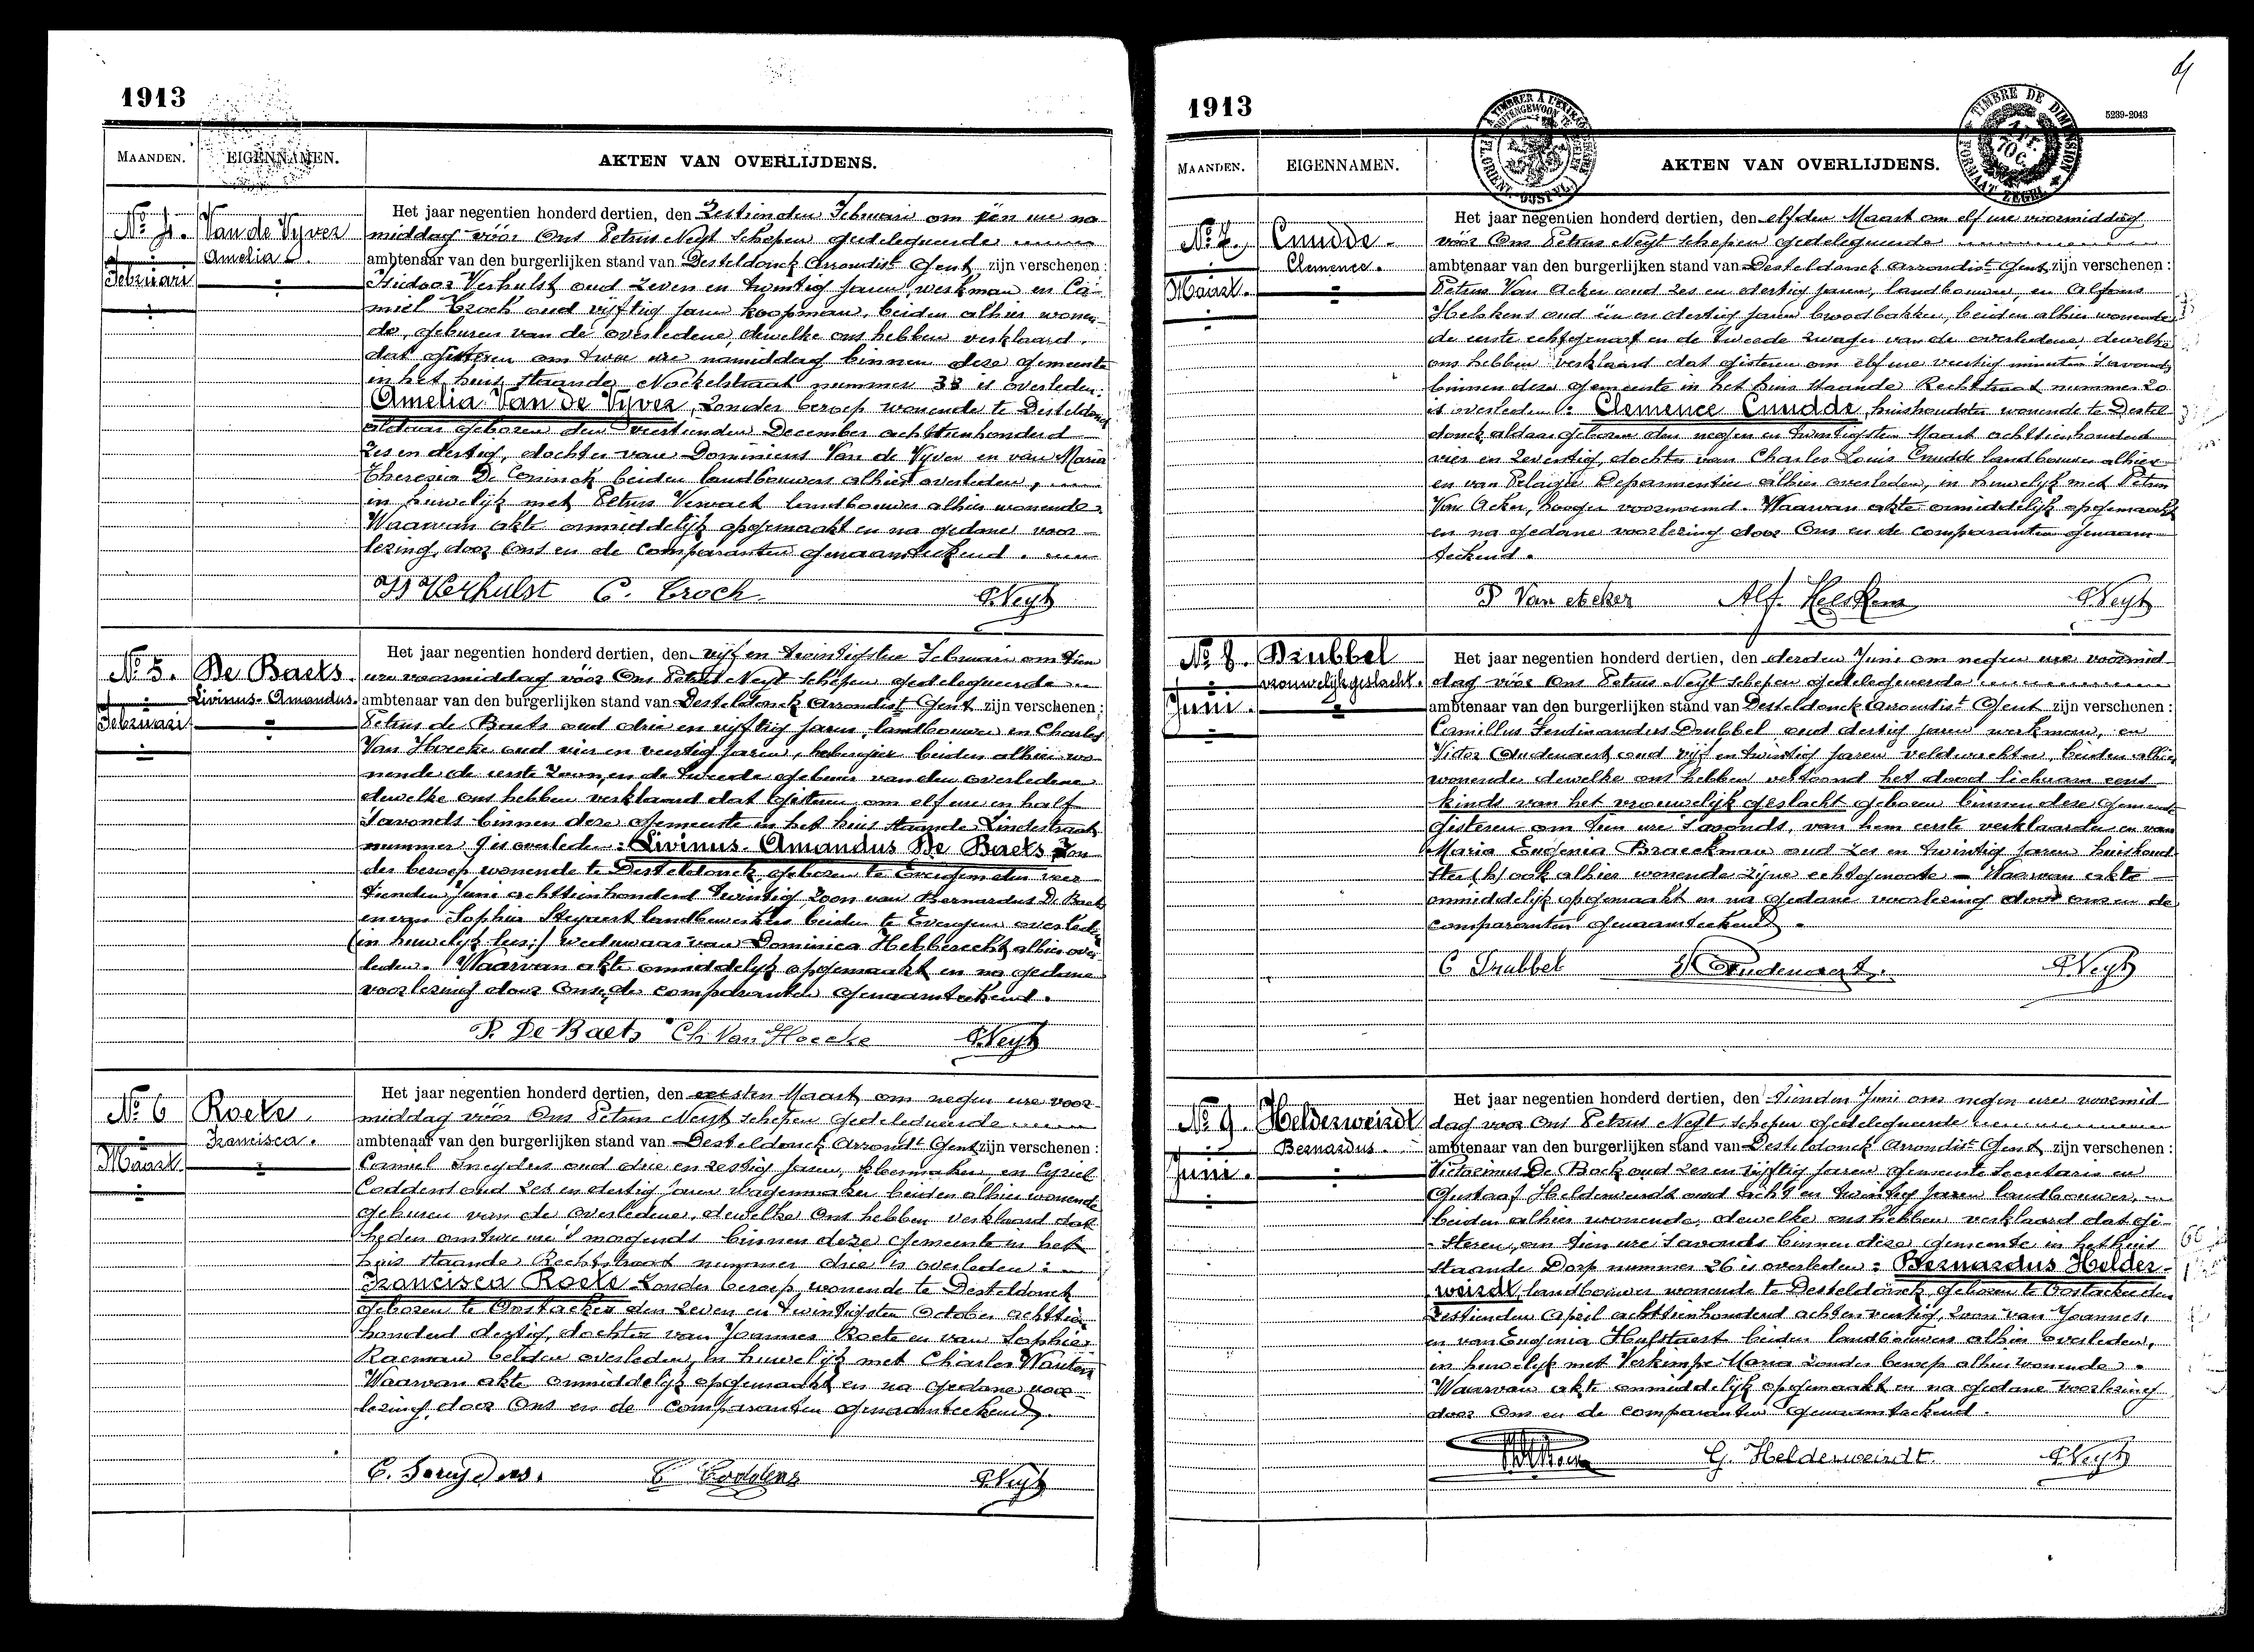 1913
MAANDEN.
EIGENNAMEN.
AKTEN VAN OVERLIJDENS.
No 4.
Februari
Van de Vyver
Amelia
Het jaar negentien honderd dertien, den Zestienden Februari om één ure na
middag vóór Ons Petrus Neyt Schepen gedelegueerde
ambtenaar van den burgerlijken stand van Desteldonck Arrondist Gent zijn verschenen:
Isidoor Verhulst oud zeven en twintig jaren, werkman en Ca-
miel Croch oud vijftig jaren koopman, beiden alhier wonen-
de, geburen van de overledene, dewelke ons hebben verklaard,
dat gisteren om twee ure namiddag binnen deze gemeente
in het huis staande Nockelstraat nummer 38 is overleden:
Amelia Van de Vyver, zonder beroep wonende te Desteldonck
aldaar geboren den veertienden December achttienhonderd
zes en dertig, dochter van Dominicus Van de Vyver en van Maria
Theresia De Coninck beiden landbouwers alhier overleden,
in huwelijk met Petrus Vervaet landbouwer alhier wonende.
Waarvan akte onmiddelijk opgemaakt en na gedane voor-
lezing, door Ons en de comparanten genaamteekend.
Is Verhulst C. Croch PNeyt
No 5.
Februari
De Baets
Livinus-Amandus.
Het jaar negentien honderd dertien, den vijf en twintigsten Februari om tien
ure voormiddag vóór Ons Petrus Neyt schepen gedelegueerde
ambtenaar van den burgerlijken stand van Desteldonck Arrondist Gent zijn verschenen:
Petrus de Baets oud drie en vijftig jaren, landbouwer en Charles
Van Hoecke oud vier en veertig jaren, herbergier beiden alhier wo-
nende de eerste zoon, en de tweede gebuur van den overledene
dewelke ons hebben verklaard dat gisteren om elf ure en half
s'avonds binnen deze gemeente in het huis staande Lindestraat
nummer 9 is overleden: Livinus-Amandus De Baets zon-
der beroep wonende te Desteldonck, geboren te Evergem den veer-
tienden Juni achttienhonderd twintig, zoon van Bernardus De Baets
en van Sophia Steyaert landbouwers beiden te Evergem overleden
(in huwelijk lees:) weduwaar van Dominica Hebberecht alhier over-
leden. Waarvan akte onmiddelijk opgemaakt en na gedane
voorlezing door Ons, de comparanten genaamteekend.
P. De Baets Ch Van Hoecke PNeyt
No 6
Maart
Roets
Francisca.
Het jaar negentien honderd dertien, den eersten Maart om negen ure voor-
middag vóór Ons Petrus Neyt schepen gedelegueerde
ambtenaar van den burgerlijken stand van Desteldonck Arrondt Gent zijn verschenen:
Camiel Sneyders oud drie en zestig jaren, kleermaker, en Cyriel
Coddens oud zes en dertig jaren wagenmaker beiden alhier wonende
geburen van de overledene, dewelke Ons hebben verklaard dat
heden om twee ure 's morgends binnen deze gemeente in het
huis staande Rechtstraat nummer drie is overleden:
Francisca Roets zonder beroep, wonende te Desteldonck
geboren te Oostacker den zeven en twintigsten October achttien
honderd dertig, dochter van Joannes Roets en van Sophie
Raeman beiden overleden, in huwelijk met Charles Wauters
Waarvan akte onmiddelijk opgemaakt en na gedane voor-
lezing, door Ons en de comparanten genaamteekend.
C. Sneyders. C Coddens PNeyt
1913
5239-2043
TIMBRE DE DIMENSION
FORMAAT ZEGEL
MAANDEN.
EIGENNAMEN.
AKTEN VAN OVERLIJDENS.
No 7.
Maart.
Cnudde.
Clemence.
Het jaar negentien honderd dertien, den elfden Maart om elf ure voormiddag
vóór Ons Petrus Neyt schepen gedelegueerde
ambtenaar van den burgerlijken stand van Desteldonck Arrondist Gent zijn verschenen:
Petrus Van Acker oud zes en dertig jaren, landbouwer, en Alfons
Heskens oud één en dertig jaren broodbakker, beiden alhier wonende
de eerste echtgenoot en de tweede zwager van de overledene, dewelke
ons hebben verklaard dat gisteren om elf ure veertig minuten s'avonds
binnen deze gemeente in het huis staande Rechtstraat nummer 20
is overleden: Clemence Cnudde, huishoudster wonende te Destel-
donck aldaar geboren den negen en twintigsten Maart achttienhonderd
vier en zeventig, dochter van Charles Louis Cnudde landbouwer alhier
en van Pelagie Deparmentier alhier overleden, in huwelijk met Petrus
Van Acker, hooger voornoemd. Waarvan akte onmiddelijk opgemaakt
en na gedane voorlezing door Ons en de comparanten genaam-
teekend.
P Van Acker Alf. Heskens PNeyt
No 8.
Juni.
Drubbel
vrouwelijk geslacht.
Het jaar negentien honderd dertien, den derden Juni om negen ure voormid-
dag vóór Ons Petrus Neyt schepen gedelegueerde
ambtenaar van den burgerlijken stand van Desteldonck Arrondist Gent zijn verschenen:
Camillus Ferdinandus Drubbel oud dertig jaren werkman, en
Victor Oudenaert oud vijf en twintig jaren veldwachter, beiden alhier
wonende dewelke ons hebben vertoond het dood lichaam eens
kinds van het vrouwelijk geslacht geboren binnen deze gemeente
gisteren om tien ure s'avonds, van hem eerste verklaarder en van
Maria Eugenia Braeckman oud zes en twintig jaren huishoud-
ster, ook alhier wonende zijne echtgenoote - Waarvan akte
onmiddelijk opgemaakt en na gedane voorlezing door ons en de
comparanten genaamteekend.
C Drubbel V Oudenaert. PNeyt
No 9.
Juni.
Helderweirdt
Bernardus.
Het jaar negentien honderd dertien, den Tienden Juni om negen ure voormid-
dag voor Ons Petrus Neyt, schepen gedelegueerde
ambtenaar van den burgerlijken stand van Desteldonck Arrondist Gent zijn verschenen:
Victorinus De Bock oud zes en vijftig jaren gemeente Secretaris en
Gustaaf Helderweirdt oud acht en twintig jaren landbouwer,
beiden alhier wonende, dewelke ons hebben verklaard dat gi-
steren, om tien ure s'avonds binnen deze gemeente in het huis
staande Dorp nummer 26 is overleden: Bernardus Helder-
weirdt, landbouwer wonende te Desteldonck, geboren te Oostacker den
zestienden April achttienhonderd acht en veertig, zoon van Joannes,
en van Eugenia Hulstaert beiden landbouwers alhier overleden,
in huwelijk met Verkimpe Maria zonder beroep alhier wonende.
Waarvan akte onmiddelijk opgemaakt en na gedane voorlezing
door Ons en de comparanten genaamteekend.
G. Helderweirdt. PNeyt